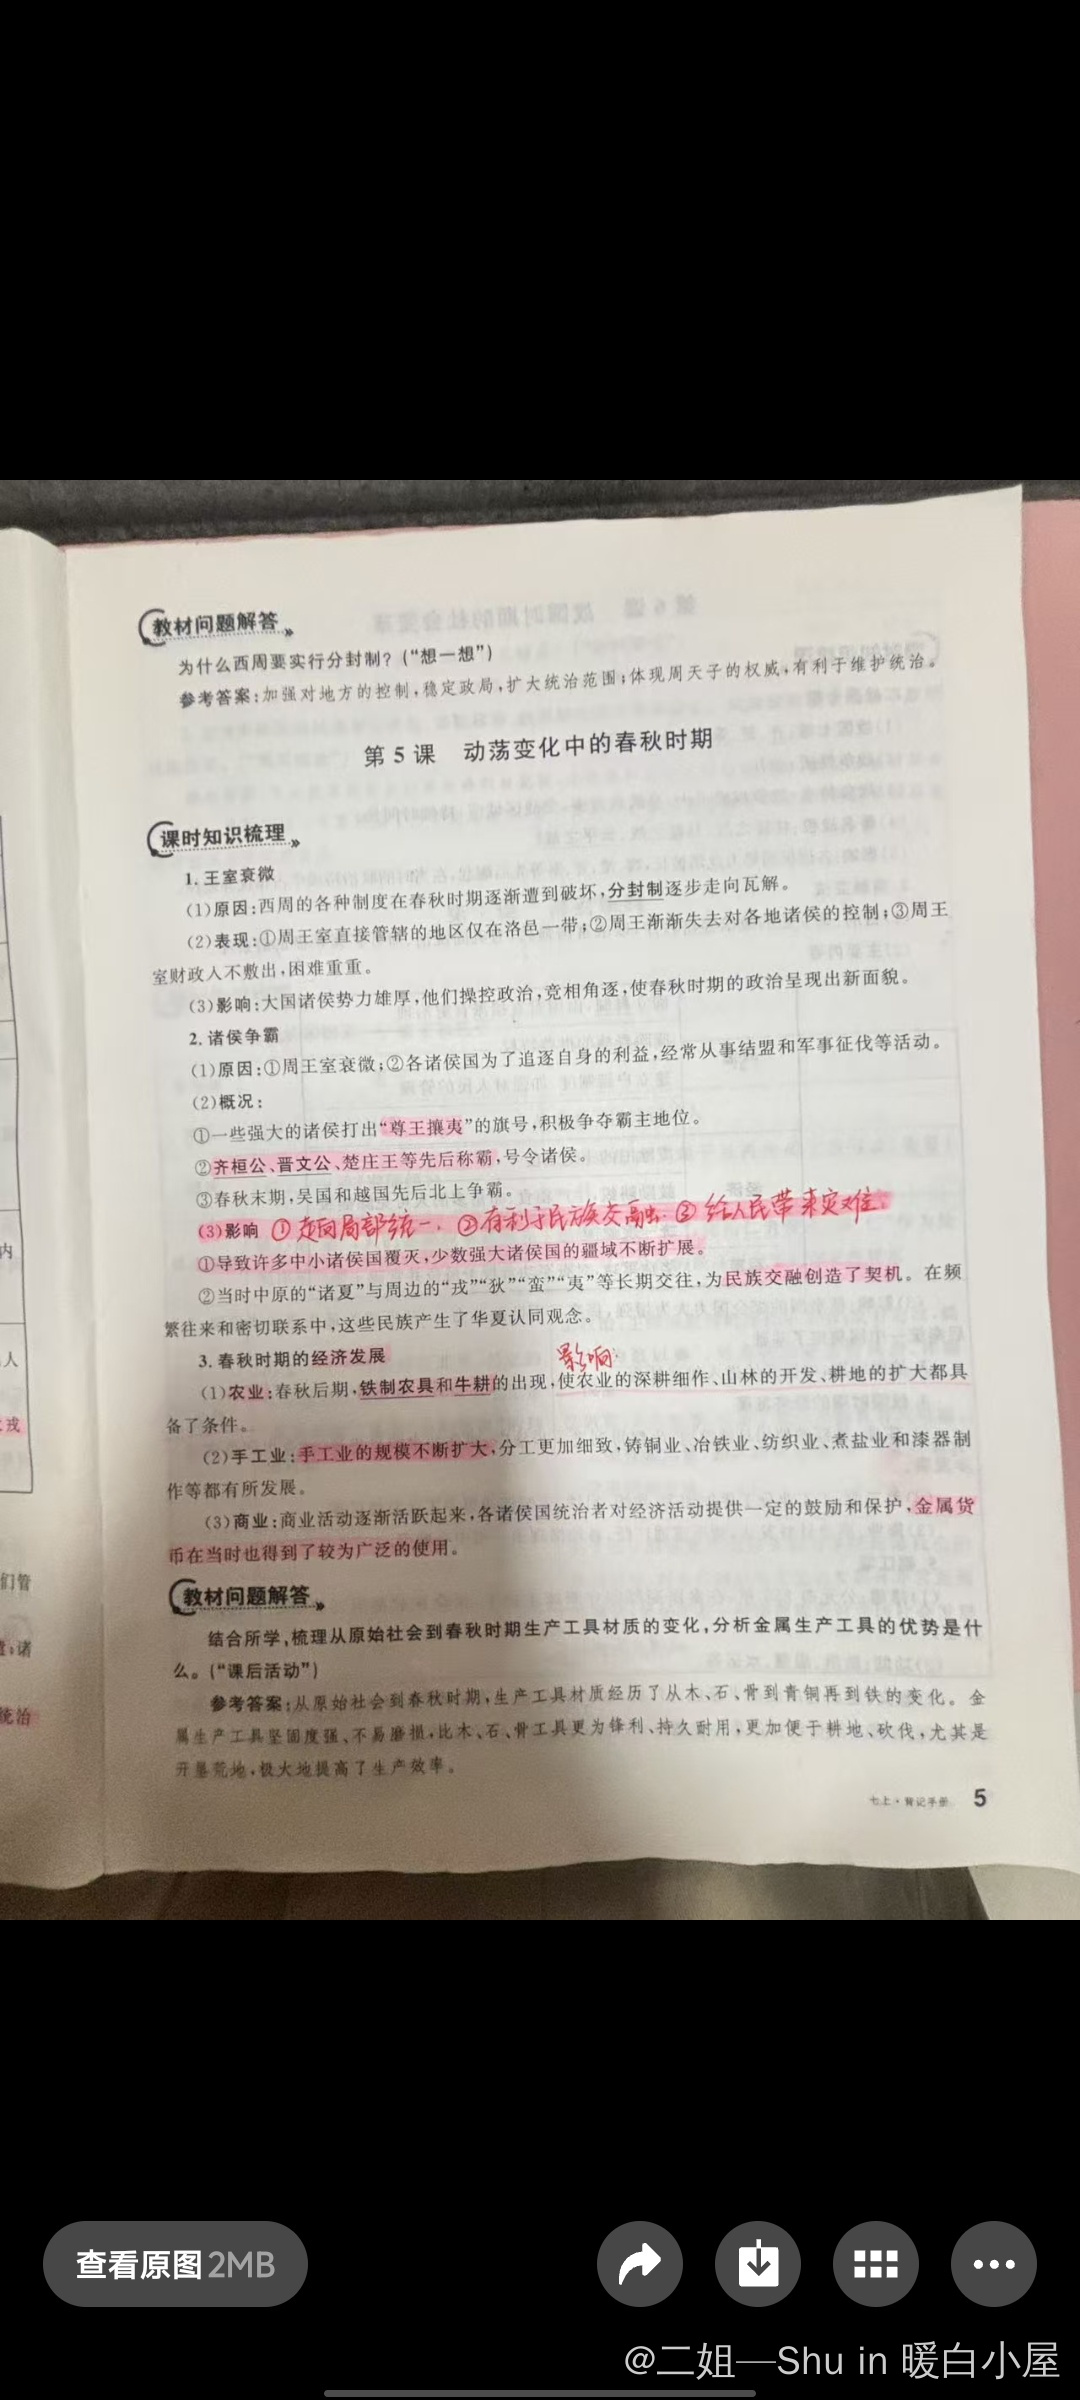 教材问题解答
为什么西周要实行分封制？(“想一想”)
参考答案:加强对地方的控制,稳定政局,扩大统治范围;体现周天子的权威,有利于维护统治。
第5课 动荡变化中的春秋时期
课时知识梳理
1. 王室衰微
(1)原因:西周的各种制度在春秋时期逐渐遭到破坏,分封制逐步走向瓦解。
(2)表现:①周王室直接管辖的地区仅在洛邑一带;②周王渐渐失去对各地诸侯的控制;③周王
室财政入不敷出,困难重重。
(3)影响:大国诸侯势力雄厚,他们操控政治,竞相角逐,使春秋时期的政治呈现出新面貌。
2. 诸侯争霸
(1)原因:①周王室衰微;②各诸侯国为了追逐自身的利益,经常从事结盟和军事征伐等活动。
(2)概况:
①一些强大的诸侯打出“尊王攘夷”的旗号,积极争夺霸主地位。
②齐桓公、晋文公、楚庄王等先后称霸,号令诸侯。
③春秋末期,吴国和越国先后北上争霸。
(3)影响 ①走向局部统一. ②有利于民族交融 ③给人民带来灾难.
①导致许多中小诸侯国覆灭,少数强大诸侯国的疆域不断扩展。
②当时中原的“诸夏”与周边的“戎”“狄”“蛮”“夷”等长期交往,为民族交融创造了契机。在频
繁往来和密切联系中,这些民族产生了华夏认同观念。
3. 春秋时期的经济发展
影响:
(1)农业:春秋后期,铁制农具和牛耕的出现,使农业的深耕细作、山林的开发、耕地的扩大都具
备了条件。
(2)手工业:手工业的规模不断扩大,分工更加细致,铸铜业、冶铁业、纺织业、煮盐业和漆器制
作等都有所发展。
(3)商业:商业活动逐渐活跃起来,各诸侯国统治者对经济活动提供一定的鼓励和保护,金属货
币在当时也得到了较为广泛的使用。
教材问题解答
结合所学,梳理从原始社会到春秋时期生产工具材质的变化,分析金属生产工具的优势是什
么。(“课后活动”)
参考答案:从原始社会到春秋时期,生产工具材质经历了从木、石、骨到青铜再到铁的变化。金
属生产工具坚固度强、不易磨损,比木、石、骨工具更为锋利、持久耐用,更加便于耕地、砍伐,尤其是
开垦荒地,极大地提高了生产效率。
七上·背记手册 5
内
人
戎
们管
诸
统治
查看原图 2MB
@二姐—Shu in 暖白小屋